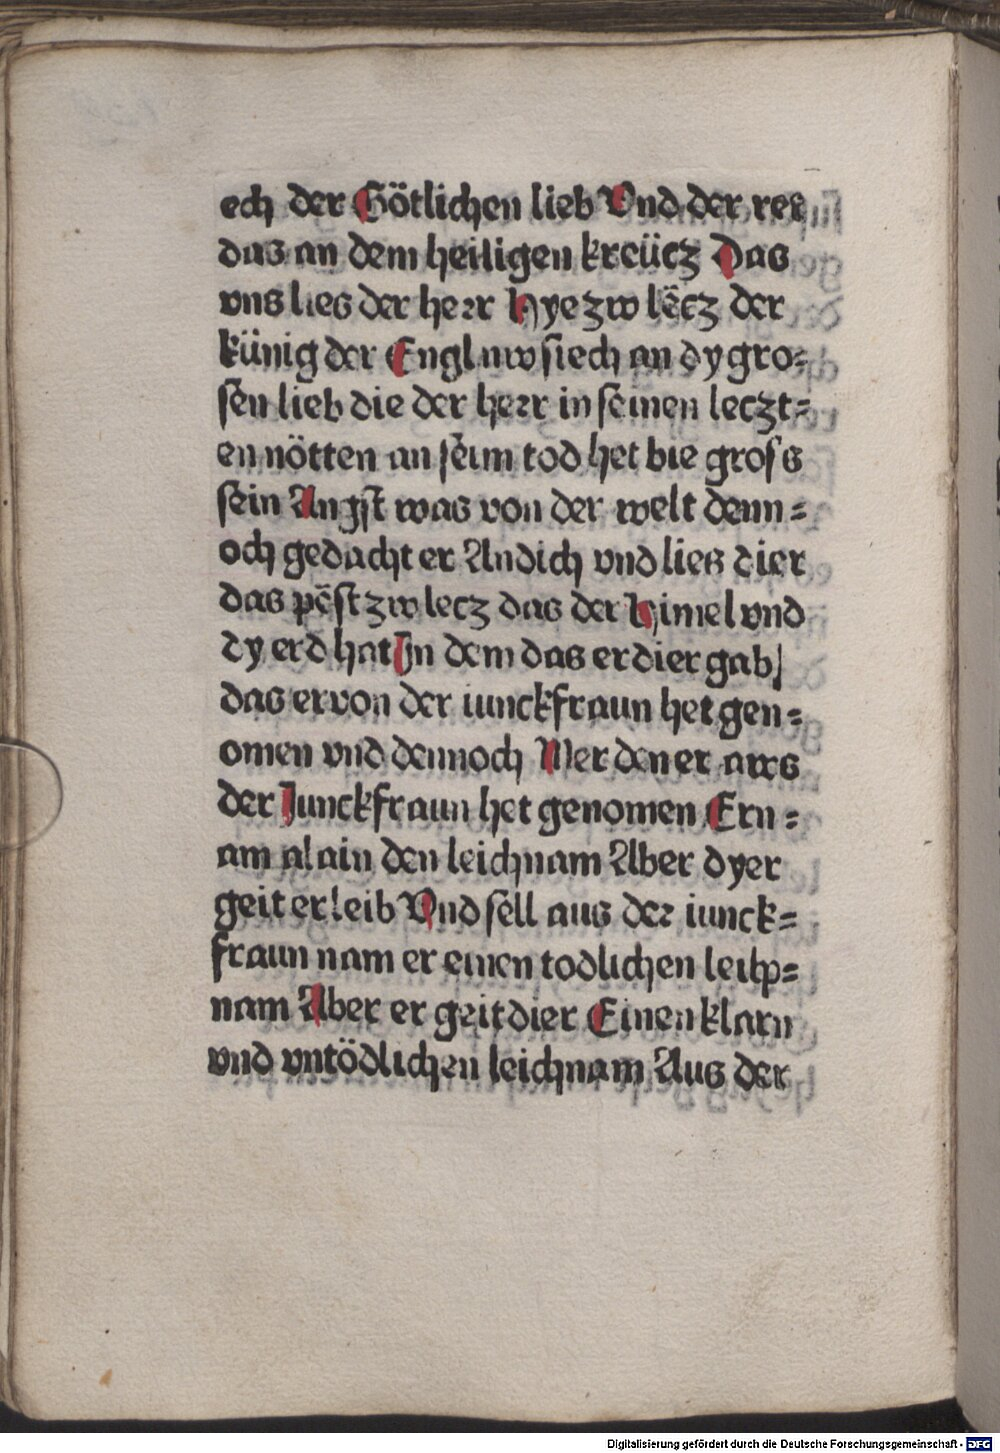 ech der Götlichen lieb Vnd der ret
das an dem heiligen kreücz Das
vns lies der herr Hye zw lecz der
künig der Engl nw siech an dy gro=
sen lieb die der herr in seinen leczt=
en nötten an seim tod het bie gross
sein Angst was von der welt denn=
och gedacht er An dich vnd lies dier
das pest zw lecz das der himel vnd
dy erd hat Jn dem das er dier gab
das er von der iunckfraun het gen=
omen vnd dennoch Mer den er aws
der Junckfraun het genomen Er n=
am alain den leichnam Aber dyer
geit er leib Vnd sell aus der iunck=
fraun nam er einen todlichen leihp=
nam Aber er geit dier Einen klarn
vnd vntödlichen leichnam Aus der
Digitalisierung gefördert durch die Deutsche Forschungsgemeinschaft - DFG